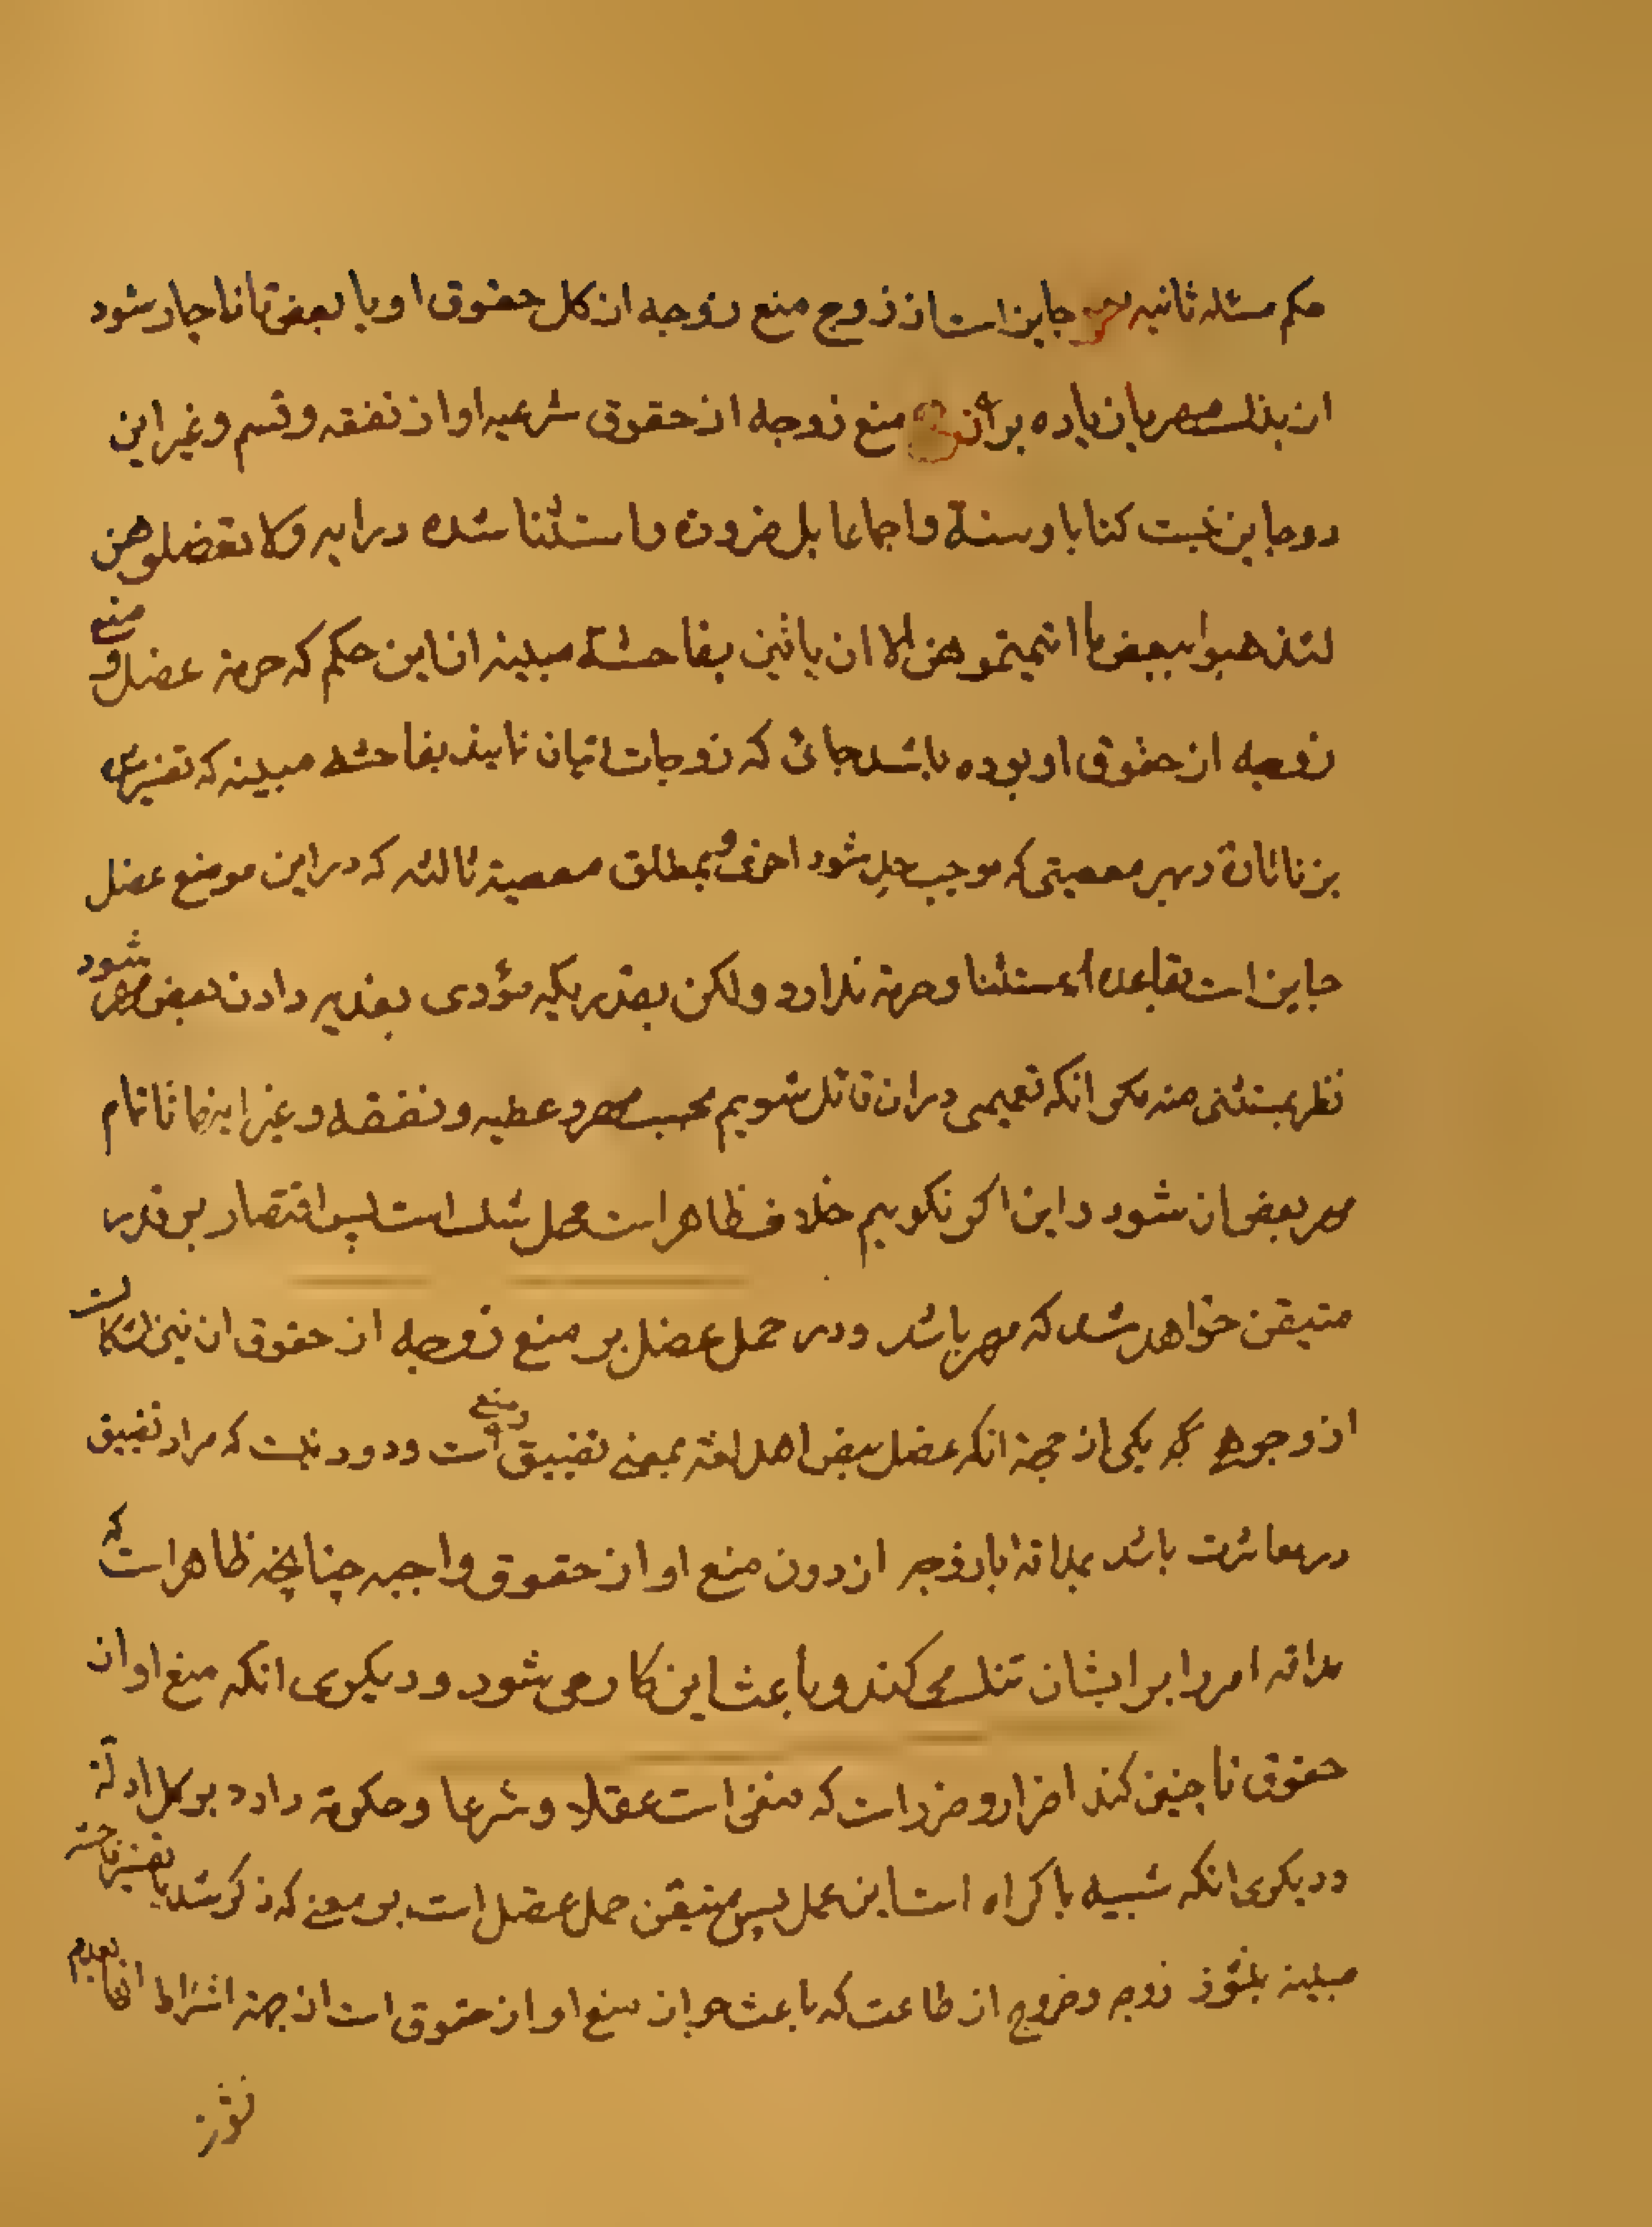 حکم مسئله ثانیه جایز است از زوج منع زوجه از کل حقوق او یا بعض تا ناچار شود
از بذل مهر یا زیاده بر آن منع زوجه از حقوق شرعیه او از نفقه و قسم و غیر این
دو جایز نیست کتابا و سنة و اجماعا بل ضرورة و استثنا شده در ایه ولا تعضلوهن
لتذهبوا ببعض ما اتیتموهن الا ان یاتین بفاحشة مبینه از این حکم که حرمة عضل و منع
زوجه از حقوق او بوده باشد جائی که زوجات اتیان نمایند بفاحشه مبینه که تفسیر
بزنا تارة و بهر معصیتی که موجب حد شود اخری و بمطلق معصیة ثالثه که در این موضع عضل
جایز است بقاعده استثنا و حرمة ندارد ولکن بقدریکه مؤدی بفدیه دادن بعض مهر شود
نظر بمستثنی منه مگر انکه تعمیمی در ان قائل شویم بحسب مهر و عطیه و نفقه و غیر اینها تا تمام
مهر بعض ان شود و این اگر نگوییم خلاف ظاهر است محل شک است پس اقتصار بر قدر
متیقن خواهد شد که مهر باشد و در حمل عضل بر منع زوجه از حقوق ان نیز اشکال است
از وجوه یکی از جهة انکه عضل ببعض اهل لغة بمعنی تضییق و منع است و دور نیست که مراد تضییق
در معاشرت باشد بمداقه با زوجه از دون منع او از حقوق واجبه چنانچه ظاهر است که
مداقه امر را بر ایشان تنگ می کند و باعث این کار می شود و دیگری انکه منع او از
حقوق تا چنین کند اضرار و ضرر است که منفی است عقلا و شرعا و حکومة دارد بر کل ادلة
و دیگری انکه شبیه باکراه است این عمل پس متیقن حمل عضل است بر معنی که ذکر شد یا تفسیر فاحشه
مبینه بنشوز زوجه و خروج از طاعت که باعث جواز منع او از حقوق است از جهة اشتراط انها بعدم
نشوز